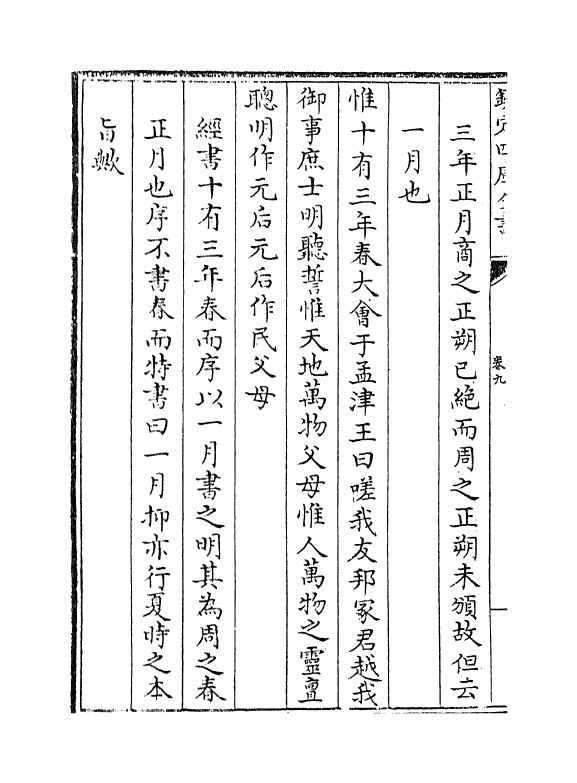 欽定四庫全書
卷九
三年正月商之正朔已絶而周之正朔未頒故但云
一月也
惟十有三年春大會于孟津王曰嗟我友邦冢君越我
御事庶士明聽誓惟天地萬物父母惟人萬物之靈亶
聰明作元后元后作民父母
經書十有三年春而序以一月書之明其為周之春
正月也序不書春而特書曰一月抑亦行夏時之本
旨歟